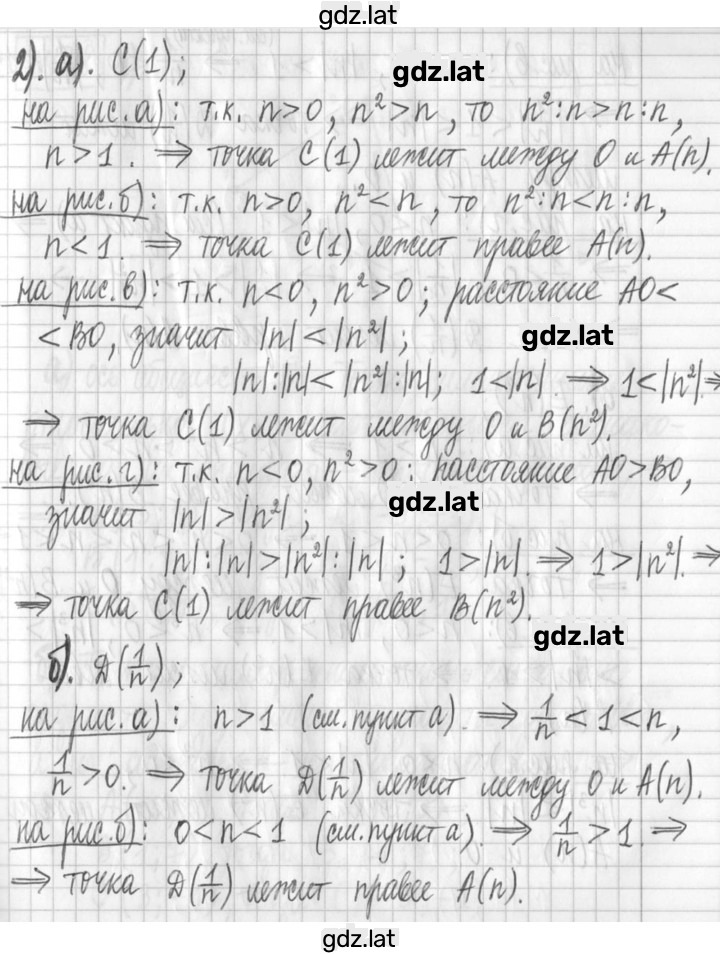 gdz.lat
2). а). C(1);
gdz.lat
на рис. а): т.к. n>0, n²>n, то n²:n>n:n,
n>1. ⇒ точка C(1) лежит между O и A(n).
на рис. б): т.к. n>0, n²<n, то n²:n<n:n,
n<1. ⇒ точка C(1) лежит правее A(n).
на рис. в): т.к. n<0, n²>0; расстояние AO<
<BO, значит |n|<|n²|;
gdz.lat
|n|:|n|<|n²|:|n|; 1<|n|. ⇒ 1<|n²|. ⇒
⇒ точка C(1) лежит между O и B(n²).
на рис. г): т.к. n<0, n²>0; расстояние AO>BO,
gdz.lat
значит |n|>|n²|;
|n|:|n|>|n²|:|n|; 1>|n|. ⇒ 1>|n²|. ⇒
⇒ точка C(1) лежит правее B(n²).
gdz.lat
б). D(1/n);
на рис. а): n>1 (см. пункт а). ⇒ 1/n<1<n,
1/n>0. ⇒ точка D(1/n) лежит между O и A(n).
на рис. б): 0<n<1 (см. пункт а). ⇒ 1/n>1. ⇒
⇒ точка D(1/n) лежит правее A(n).
gdz.lat